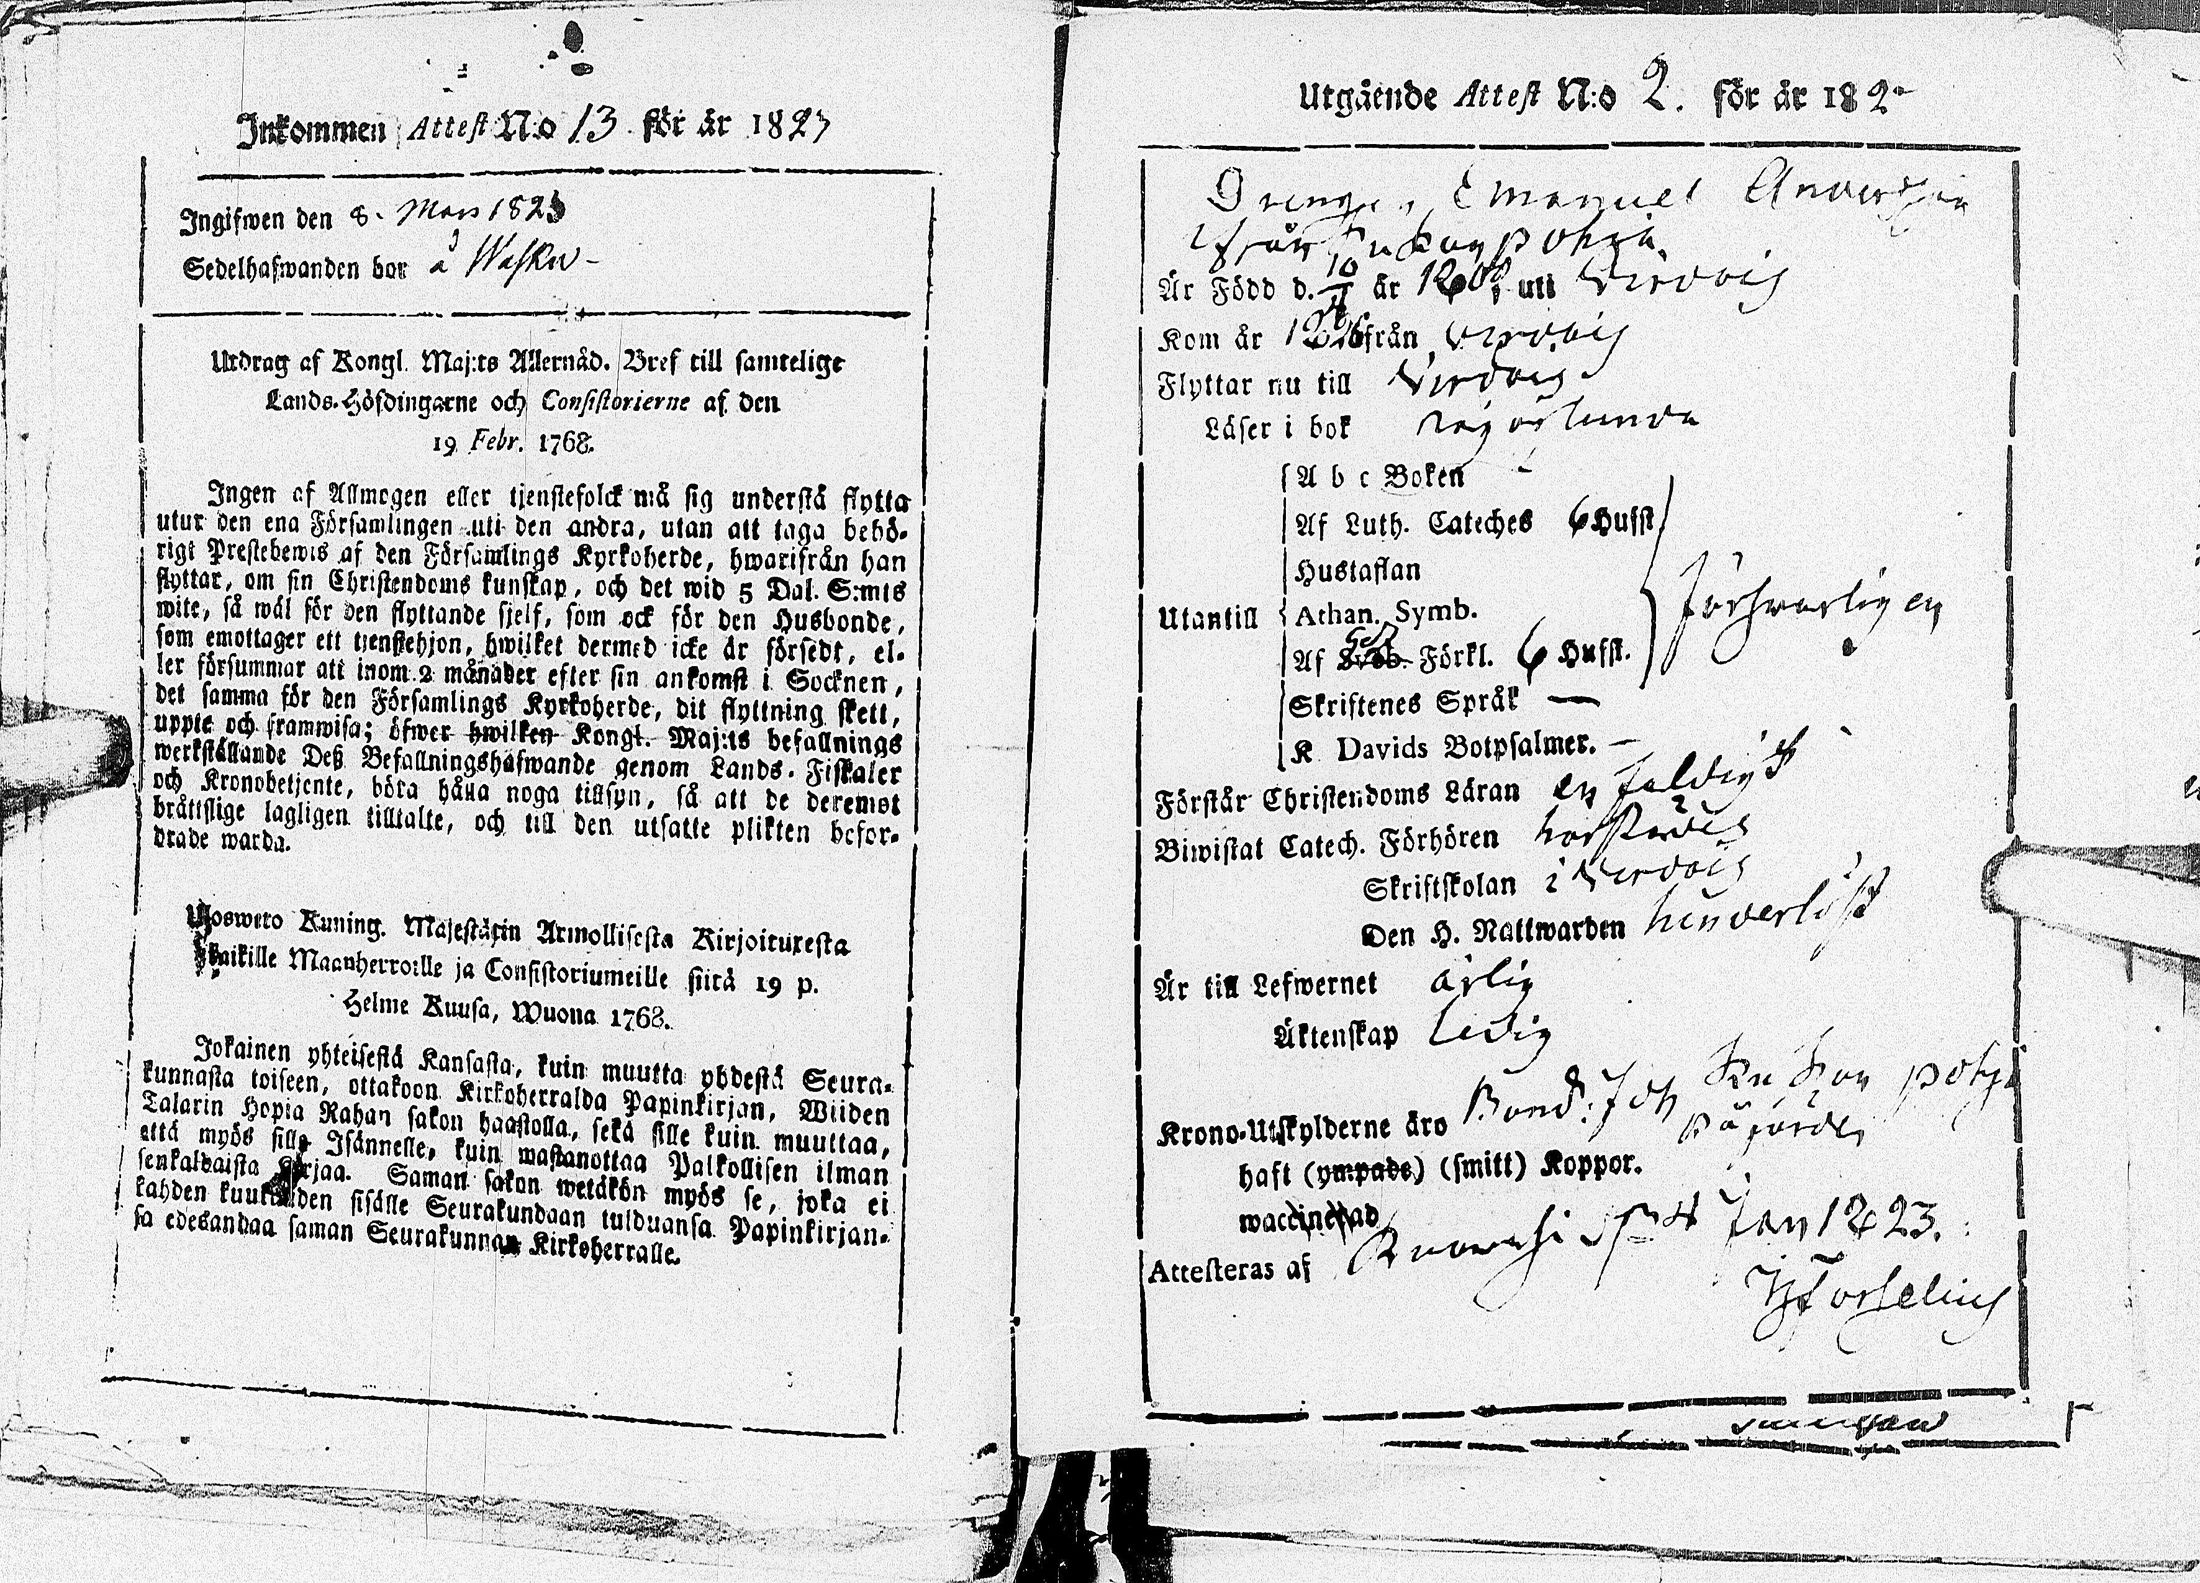 Inkommen Attest N:o 13 för år 1823
Ingifwen den 8. Mars 1823
Sedelhafwanden bor å
Utdrag af Kongl. Maj:ts Allernåd. Bref till samtelige
Lands-Höfdingarne och Consistorierne af den
19 Febr. 1768.
Ingen af Allmogen eller tjenstefolck må sig understå flytta
utur den ena Församlingen uti den andra, utan att taga behö-
rigt Prestebewis af den Församlings Kyrkoherde, hwarifrån han
flyttar, om sin Christendoms kunskap, och det wid 5 Dal. S:mts
wite, så wäl för den flyttande sjelf, som ock för den Husbonde,
som emottager ett tjenstehjon, hwilket dermed icke är försedt, el-
ler försummar att inom 2 månader efter sin ankomst i Socknen,
det samma för den Församlings Kyrkoherde, dit flyttning skett,
uppte och framwisa; öfwer hwilken Kongl. Maj:ts befallnings
werkställande Deß Befallningshafwande genom Lands-Fiskaler
och Kronobetjente, böra hålla noga tillsyn, så att de deremot
bråttslige lagligen tilltalte, och till den utsatte plikten befor-
drade warda.
Ulosweto Kuning. Majestätin Armollisesta Kirjoituxesta
kaikille Maanherroille ja Consistoriumeille siitä 19 p.
Helme Kuusa, Wuona 1768.
Jokainen yhteisestä Kansasta, kuin muutta yhdestä Seura-
kunnasta toiseen, ottakoon Kirkoherralda Papinkirjan, Wiiden
Talarin Hopia Rahan sakon haastolla, sekä sille kuin muuttaa,
että myös sille Isännelle, kuin wastanottaa Palkollisen ilman
senkaldaista Kirjaa. Saman sakon wetäkön myös se, joka ei
kahden kuukauden sisälle Seurakundaan tulduansa Papinkirjan-
sa edesandaa saman Seurakunnan Kirkoherralle.
Utgående Attest N:o 2. för år 182
Drengen Emanuel Andersson
från
Är Född d. 10 år 1808 uti Virdois
Kom år 1826 från Virdois
Flyttar nu till Virdois
Läser i bok någorlunda
A b c Boken
Af Luth. Cateches 6 Hufst.
Hustaflan
Utantill Athan. Symb. Försvarligen
Af Sveb. Förkl. 6 Hufst.
Skriftenes Språk —
K. Davids Botpsalmer. —
Förstår Christendoms Läran enfaldigt
Biwistat Catech. Förhören härstädes
Skriftskolan i Virdois
Den H. Nattwarden hinderlöst
Är till Lefwernet ärlig
Äktenskap ledig
Krono-Utskylderne äro Bond. Joh påförde
haft (ympade) (smitt) Koppor.
waccinerad
Attesteras af Jan 1823.